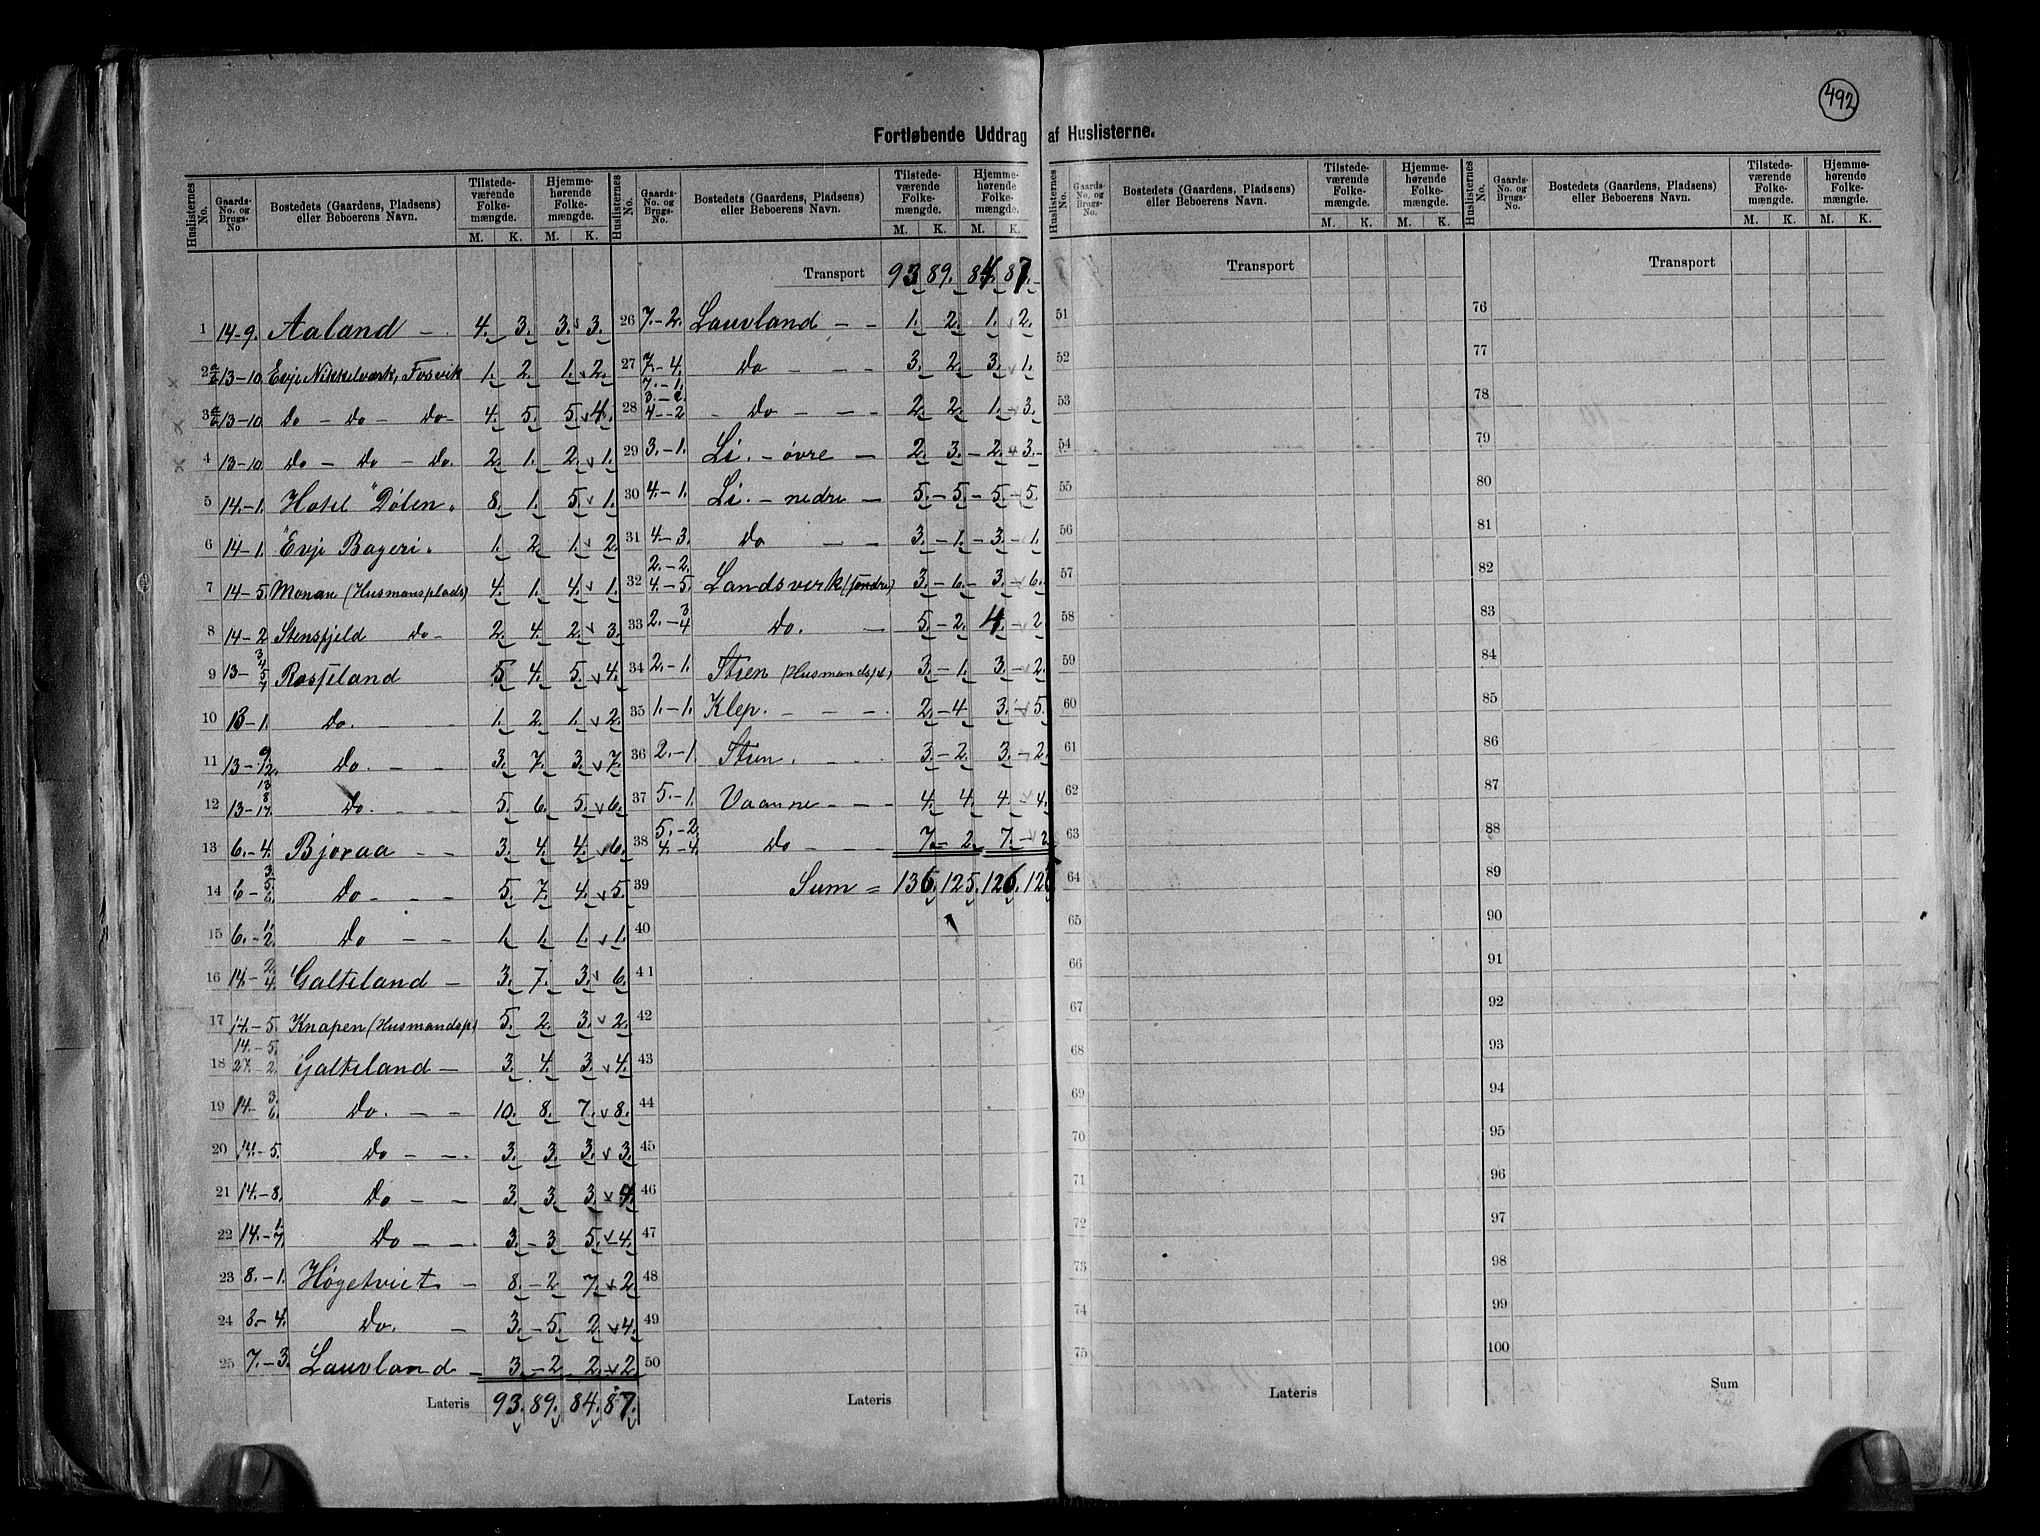 492
Fortløbende Uddrag af Huslisterne.
Huslisternes No. Gaards-No. og Brugs-No Bostedets (Gaardens, Pladsens) eller Beboerens Navn. Tilstedeværende Folkemængde. M. K. Hjemmehørende Folkemængde. M. K.
Huslisternes No. Gaards-No. og Brugs-No. Bostedets (Gaardens, Pladsens) eller Beboerens Navn. Tilstedeværende Folkemængde. M. K. Hjemmehørende Folkemængde. M. K.
Huslisternes No. Gaards-No. og Brugs-No. Bostedets (Gaardens, Pladsens) eller Beboerens Navn. Tilstedeværende Folkemængde. M. K. Hjemmehørende Folkemængde. M. K.
Huslisternes No. Gaards-No. og Brugs-No. Bostedets (Gaardens, Pladsens) eller Beboerens Navn. Tilstedeværende Folkemængde. M. K. Hjemmehørende Folkemængde. M. K.
1 14-9. Aaland - 4. 3. 3. 3.
2 13-10 Evje Nikkelværk, Fosvik 1. 2. 1. 2.
3 13-10 Do - Do - Do - 4. 5. 5. 4.
4 13-10 Do - Do - Do. 2. 1. 2. 1.
5 14-1. Hotel "Dølen" 8. 1. 5. 1.
6 14-1. "Evje Bageri. 1. 2. 1. 2.
7 14-5. Monan (Husmansplads) 4. 1. 4. 1.
8 14-2 Stensfjeld Do - 2. 4. 2. 3.
9 13- 3 4 5 7 Rosseland 5. 4. 5. 4.
10 13-1. Do. - - 1. 2. 1. 2.
11 13- 9. 12. Do. - - 3. 7. 3. 7.
12 13- 13 8 14. Do. - - 5. 6. 5. 6.
13 6.-4. Bjoraa - - 3. 4. 4. 6.
14 6- 3. 5. 6. Do - - 5. 7. 4. 5.
15 6.- 1. 2. Do - - 1. 1. 1. 1.
16 14.- 2. 4. Galteland - 3. 7. 3. 6.
17 14.-5. Knapen (Husmandsp) 5. 2. 3. 2.
18 14.-5. 27.-2. Galteland - 3. 4. 3. 4.
19 14.- 3. 6. Do. - - 10. 8. 7. 8.
20 14.-5. Do - - 3. 3. 3. 3.
21 14.-8. Do - - 3. 3. 3. 4.
22 14.- 1. 7. Do - - 3. - 3 5. 4.
23 8.-1. Høgetveit - 8. - 2 7. 2.
24 8.-4. Do. - 3. - 5. 2 4.
25 7.-3. Lauvland - 3. - 2 2. - 2.
Lateris 93. 89. 84. 87.
Transport 93 89. 84. 87.
26 7.-2. Lauvland - - 1. 2. 1. 2.
27 7.-4. Do - - 3. 2. 3. 1.
28 7.-1. 3.-2. 4.-2 Do - - 2. 2. 1. 3.
29 3.-1. Li. - øvre - 2. 3. - 2. 3.
30 4.-1. Li. - nedre - 5. - 5. - 5. - 5.
31 4-3. Do - - 3. - 1. - 3. - 1.
32 2.-2. 4.-5. Landsverk (søndre) 3. - 6. - 3. - 6.
33 2.- 3 4 Do. - 5. - 2. 4. - 2
34 2.-1. Stien (Husmandspl) 3. - 1. 3. - 2.
35 1.-1. Klep. - - - 2. - 4. 3. - 5.
36 2.-1. Stien. - - 3. - 2. 3. - 2.
37 5.-1. Vaanne - - - 4. - 4. 4. - 4.
38 5.-2. 4.-4. Do - - - 7. - 2. 7. - 2.
39 Sum = 136. 125. 126. 126
40
41
42
43
44
45
46
47
48
49
50
Lateris
Transport
51
52
53
54
55
56
57
58
59
60
61
62
63
64
65
66
67
68
69
70
71
72
73
74
75
Lateris
Transport
76
77
78
79
80
81
82
83
84
85
86
87
88
89
90
91
92
93
94
95
96
97
98
99
100
Sum